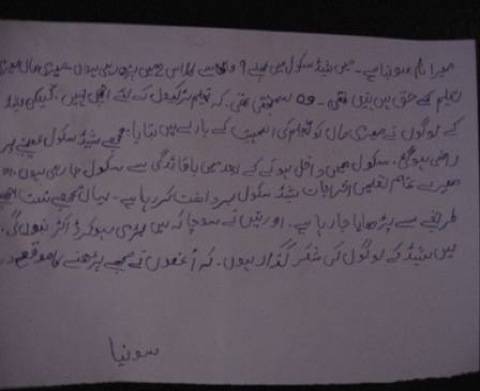 میرا نام سونیا ہے۔ میں ہیڈ سکول میں پچھلے 9 کلاس میں پڑھ رہی ہوں میری ماں میری
تعلیم کے حق میں نہیں تھی۔ وہ سمجھتی تھی۔ کہ تعلیم لڑکیوں کے لئے اچھی نہیں، لیکن ہیڈ
کے لوگوں نے میری ماں کو تعلیم کی اہمیت کے بارے میں بتایا: مجھے ہیڈ سکول بھیجنے پر
راضی ہوگئی۔ سکول میں داخل ہونے کے بعد میں باقائدگی سے سکول جا رہی ہوں۔
میرے تمام تعلیمی اخراجات ہیڈ سکول برداشت کر رہا ہے۔ یہاں مجھے بہت اچھے
طریقے سے پڑھایا جا رہا ہے۔ اور میں نے سوچا کہ میں بڑی ہو کر ڈاکٹر بنوں گی۔
میں ہیڈ کے لوگوں کی شکر گذار ہوں۔ کہ اُنھوں نے مجھے پڑھنے کا موقع
سونیا